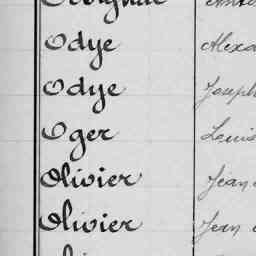 Odye Alexa
Odye Joseph
Oger Louis
Olivier Jean
Olivier Jean